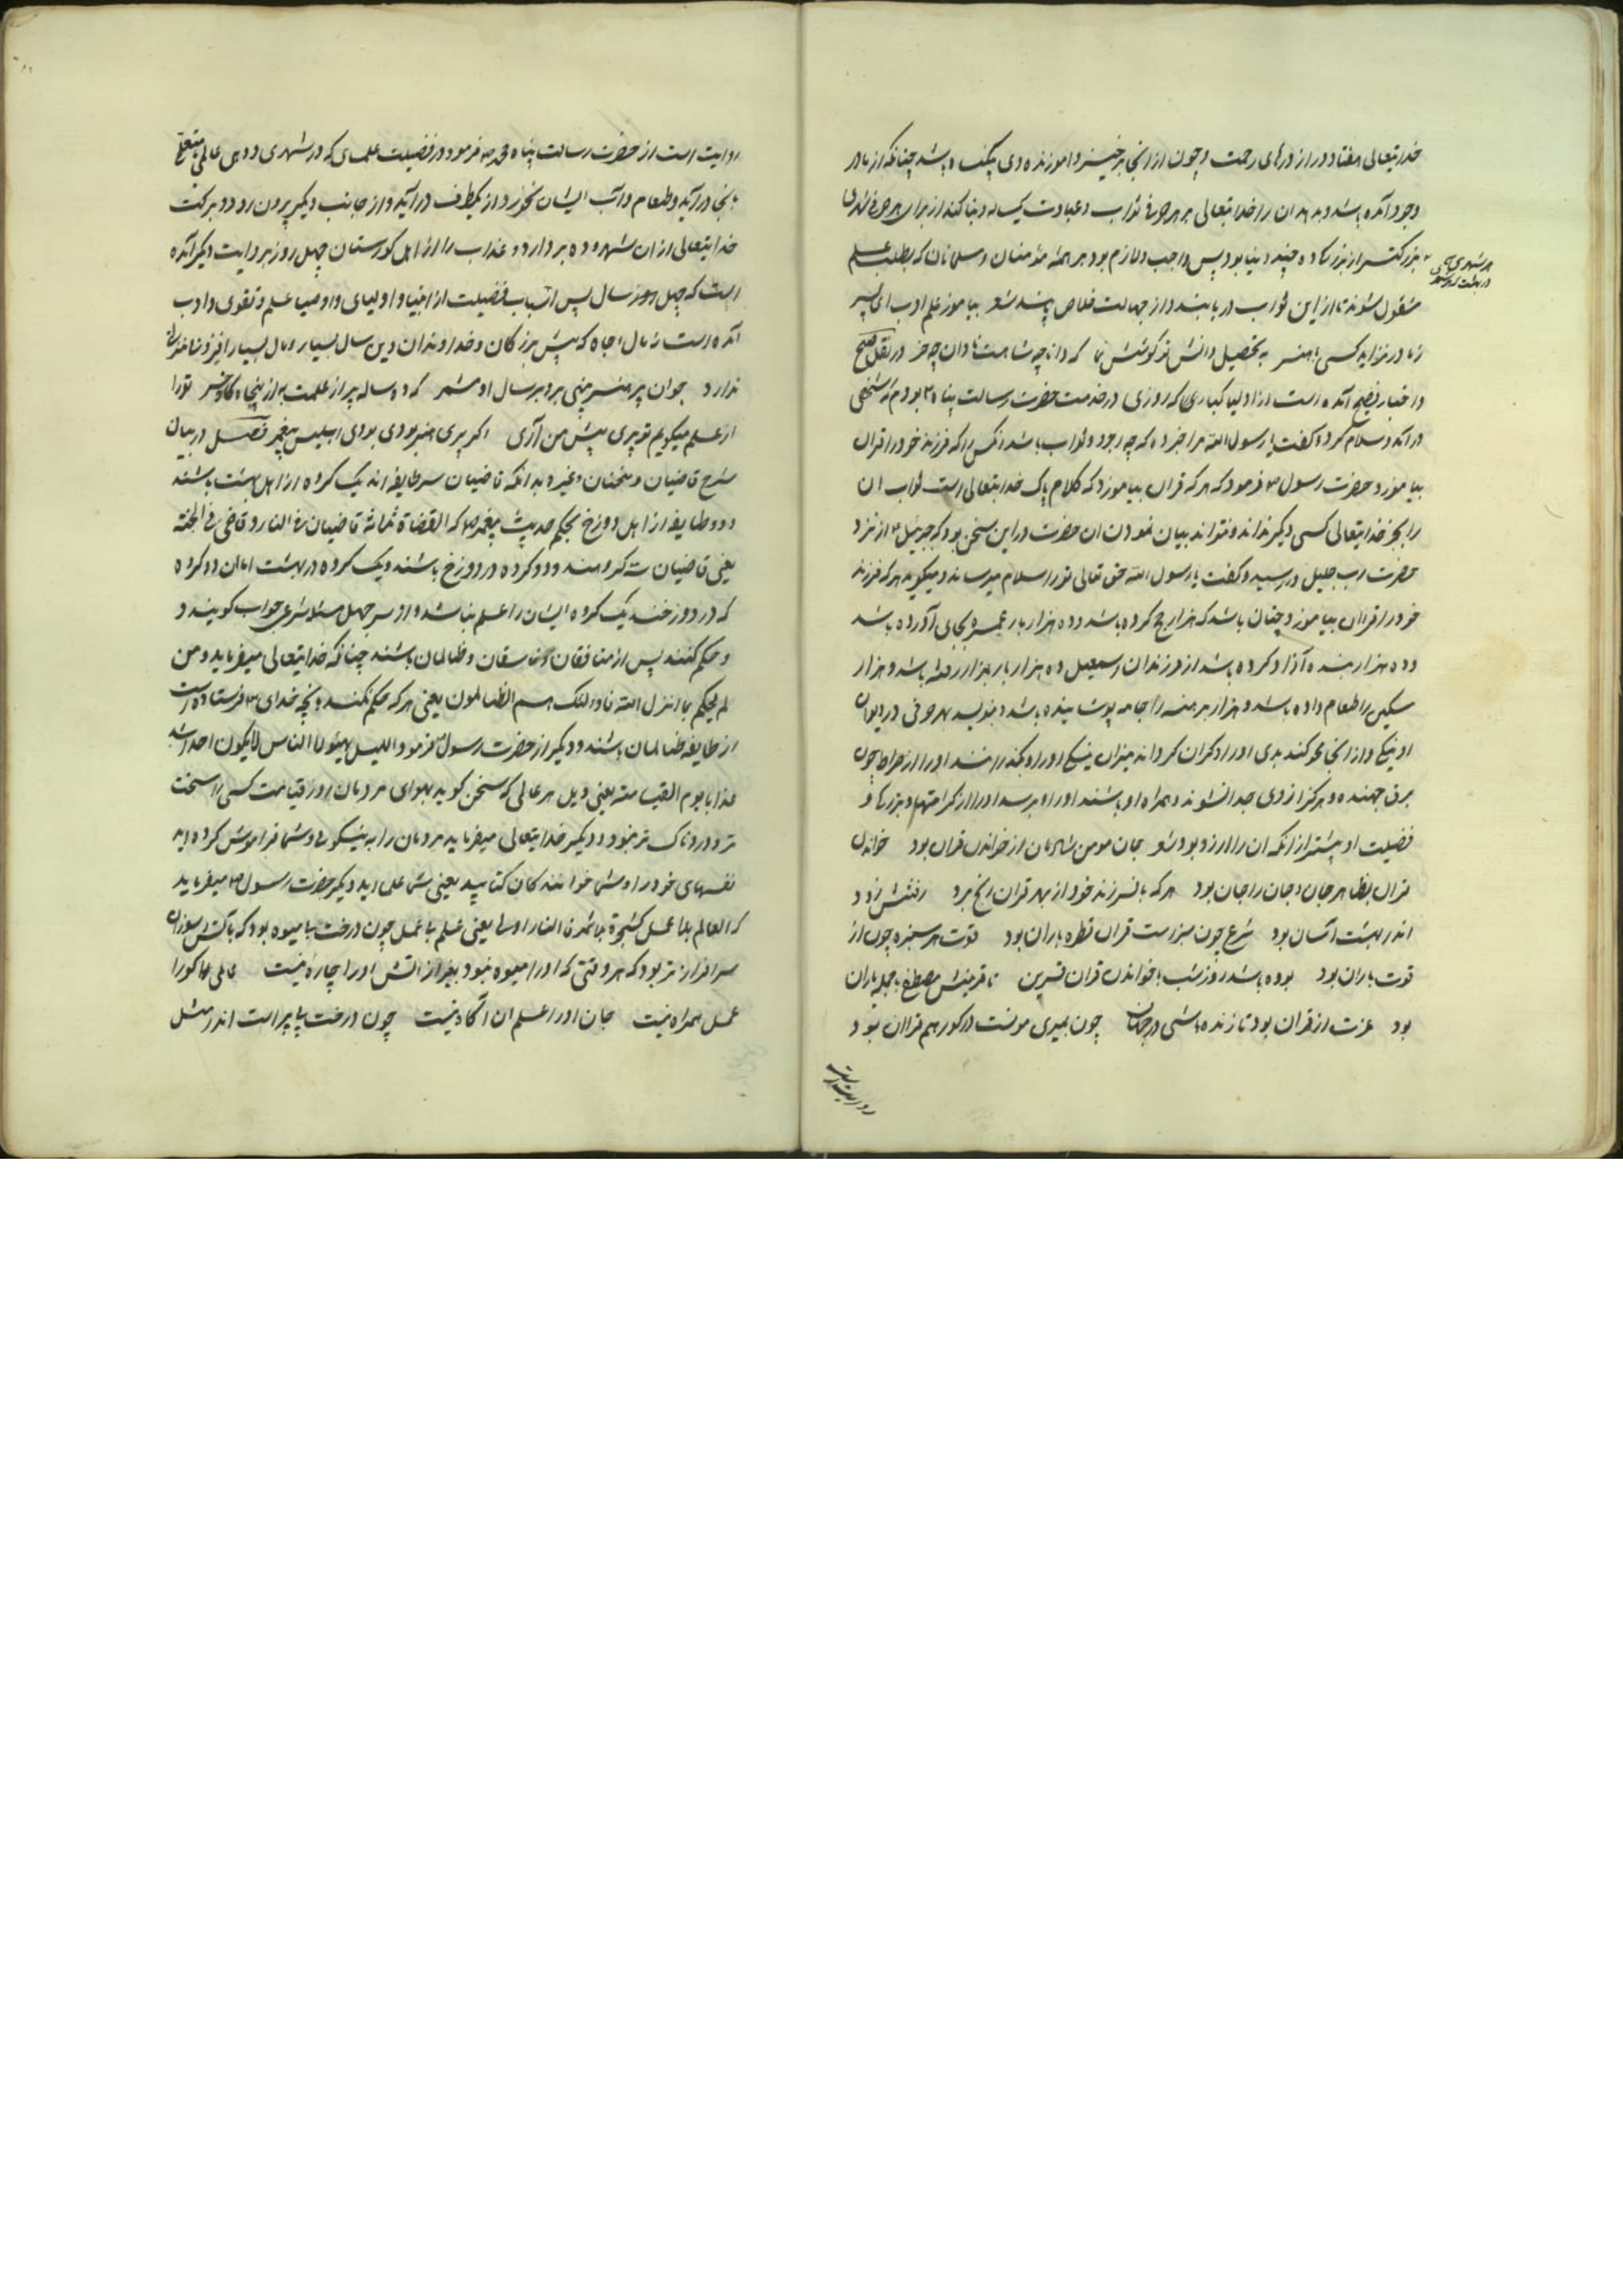 خدایتعالی هفتاد در از درهای رحمت و چون از انجا برخیزد و اموزنده وی پاک باشد چنانکه از مادر
وجود آمده باشد و بدهد ان را خدایتعالی بهر حرفی ثواب و عبادت یکساله و بنا کند از برای هر حرفی شهری
بزرگتر از بزرگی ده چند دنیا بود پس واجب و لازم بود بر همه مؤمنان و مسلمانان که بطلب علم
هر شهری
در بهشت
مشغول شوند تا از این ثواب دریابند و از جهالت خلاص یابند شعر بیاموز علم و ادب ای پسر
ز مادر نزاید کسی با هنر به تحصیل دانش تو کوشش نما که دانا چو شاهست نادان چو خر در نقل صحیح
و اخبار فصیح آمده است از اولیا کبار که روزی در خدمت حضرت رسالت پناه بودم که شخصی
در آمد و سلام کرد و گفت یا رسول الله مرا خبر ده که چه اجر و ثواب باشد انکس را که فرزند خود را قران
بیاموزد حضرت رسول فرمود که هر که قران بیاموزد که کلام پاک خدایتعالی است ثواب ان
را بجز خدایتعالی کسی دیگر نداند و نتواند بیان نمودن ان حضرت در این سخن بود که جبرئیل از نزد
حضرت رب جلیل در رسید و گفت یا رسول الله حق تعالی تو را سلام میرساند و میگوید هر که فرزند
خود را قران بیاموزد چنان باشد که هزار حج کرده باشد و ده هزار بار عمره بجای آورده باشد
و ده هزار بنده آزاد کرده باشد از فرزندان اسمعیل و ده هزار بار بغزا رفته باشد و هزار
مسکین را طعام داده باشد و هزار برهنه را جامه پوشانیده باشد و بنویسد بهر حرفی در دیوان
او نیکی و از انجا محو کند بدی او را و گران گرداند میزان نیکی او را و بگذرانند او را از صراط چون
برق جهنده و هرگز از وی جدا نشوند و همراه او باشند او را و برسد او را از کرامتها و بزرگی و
فضیلت او بیشتر از انکه ان را ارزو بود شعر جان مومن شادمان از خواندن قران بود خواندن
قران بظاهر جان و جان را جان بود هر که با فرزند خود از بهر قران رنج برد رفتنش زود
اندر بهشت آسان بود شرع چون سبزست قران قطره باران بود قوت هر سبزه چون از
قوت باران بود بوده باشد روز شب با خواندن قران قرین تا قرینش مصطفی با جمله یاران
بود عزت از قران بود تا زنده باشی در جهان چون بمیری مونست در گور هم قران بود
روایت است
روایت است از حضرت رسالت پناه محمد ص فرمود در فضیلت علمای که در شهری و دهی عالمی یا متعلمی
بانجا در آید و طعام و آب ایشان نخورد از یکطرف در آید و از جانب دیگر بیرون رود و برکت
خدایتعالی از ان شهر و ده بردارد و عذاب را از اهل گورستان چهل روز بروایت دیگر آمده
است که چهل سال پس اسباب فضیلت از انبیا و اولیای و اوصیا علم و تقوی و ادب
آمده است نه مال و جاه که پیش بزرگان و خداوندان دین سال بسیار و مال بسیار
ندارد جوان پر هنر بینی برو بر سال او مشمر که ده ساله پر از علمت به از پنجاه گاو خر تو را
از علم میگویم تو پیری پیش من آری اگر پیری هنر بودی بودی ابلیس پیغمبر فصل در بیان
شرح قاضیان و سخنان و غیره بدانکه قاضیان سر طایفه اند یک گروه از اهل بهشت باشند
و دو طایفه از اهل دوزخ بحکم حدیث پیغمبر ص که القضاة ثلاثة قاضیان فی النار و قاضی فی الجنة
یعنی قاضیان سه گروهند و دو گروه در دوزخ باشند و یک گروه در بهشت اما ان دو گروه
که در دوزخند یک گروه ایشان را علم نباشد و از سر جهل مسئلا شرعی جواب گویند و
و حکم کنند پس از منافقان و فاسقان و ظالمان باشند چنانکه خدایتعالی میفرماید و من
لم یحکم بما انزل الله فاولئک هم الظالمون یعنی هر که حکم نکند بانچه خدای فرستاده است
از طایفه ظالمان باشند و دیگر از حضرت رسول فرمود الناس لا یکون احدا اشد
عذابا یوم القیامته یعنی ویل هر عالمی که سخن گوید بهوای مردمان روز قیامت کسی را سخت
تر و دردناک تر نبود و دیگر خدایتعالی میفرماید مردمان را به نیکوئی و شما فراموش کرده اید
نفسهای خود را و شما خوانندگان کتابید یعنی شما علمائید و دیگر حضرت رسول میفرماید
که العالم بلا عمل کشجرة بلا ثمر فالنار اولی یعنی علم بی عمل چون درخت بی میوه بود که باتش سوزان
سر افرازتر بود که هر وقتی که او را میوه نبود بغیر از اتش او را چاره نیست عالمی کو را
عمل همراه نیست جان او را علم ان آگاه نیست چون درخت بی بر است اندر مثل